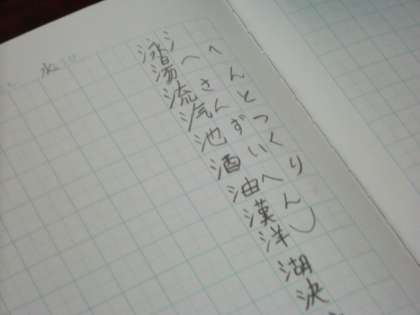 へんとつくり
(さんずいへん)
湯流汽池酒油漢洋湖決
水